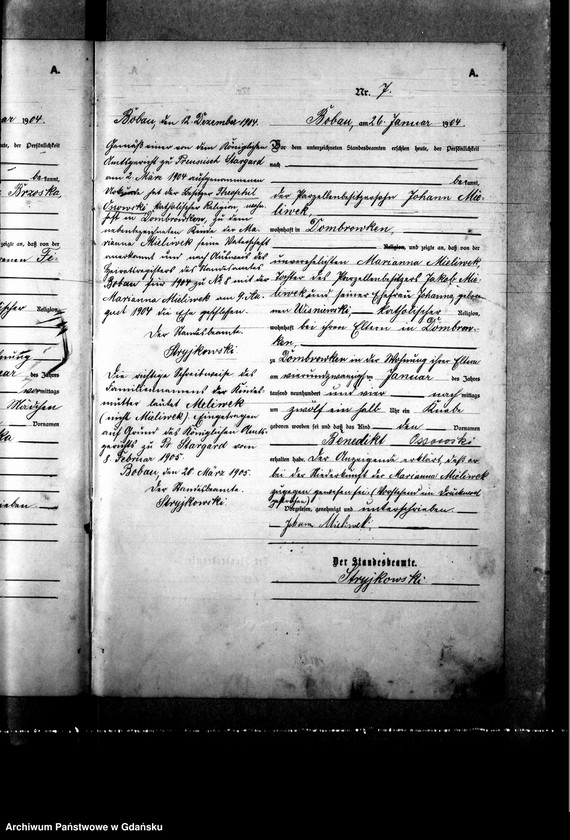 A.
ar 1904.
ute, der Persönlichkeit
be=kannt,
Brzoska,
zeigte an, daß von der
enen
Religion,
ar des Jahres
vormittags
Mädchen
Vornamen
ka
ieben.
A.
Nr. 7.
Bobau, den 12. Dezember 1904.
Gemäß einer von dem Königlichen
Amtsgericht zu Preussisch Stargard
am 2. März 1904 aufgenommenen
Urkunde hat der Besitzer Theophil
katholischer Religion, wohn=
haft in Dombrowken, zu dem
nebenbezeichneten Kinde der Ma=
rianna Mieliwek seine Vaterschaft
anerkannt und nach Ausweis des
Heiratsregisters des Standesamtes
Bobau für 1904 zu Nr. 8 mit der
Marianna Mieliwek am 9. Au=
gust 1904 die Ehe geschlossen.
Der Standesbeamte.
Stryjkowski
Die richtige Schreibweise des
Familiennamens der Kindes=
mutter lautet Meliwek
(nicht Mieliwek). Eingetragen
auf Grund des Königlichen Amts=
gerichts zu Pr. Stargard vom
8. Februar 1905.
Bobau, den 20. März 1905.
Der Standesbeamte.
Stryjkowski.
Bobau, am 26. Januar 1904.
Vor dem unterzeichneten Standesbeamten erschien heute, der Persönlichkeit
nach
be=kannt,
der Parzellenbesitzersohn Johann Mie=
liwek,
wohnhaft in Dombrowken,
Religion, und zeigte an, daß von der
unverehelichten Marianna Mieliwek,
Tochter des Parzellenbesitzers Jakob Mie=
liwek und seiner Ehefrau Johanna gebore=
nen Wisniewski, katholischer Religion,
wohnhaft bei ihren Eltern in Dombrow=
ken,
zu Dombrowken in der Wohnung ihrer Eltern
am vierundzwanzigsten Januar des Jahres
tausend neunhundert und vier nach mittags
um zwölf ein halb Uhr ein Knabe
geboren worden sei und daß das Kind den Vornamen
Benedikt Ossowski
erhalten habe. Der Anzeigende erklärt, daß er
bei der Niederkunft der Marianna Mieliwek
zugegen gewesen sei. (Vorstehend im Vordruck
gestrichen)
Vorgelesen, genehmigt und unterschrieben
Johann Mieliwek.
Der Standesbeamte.
Stryjkowski
Archiwum Państwowe w Gdańsku